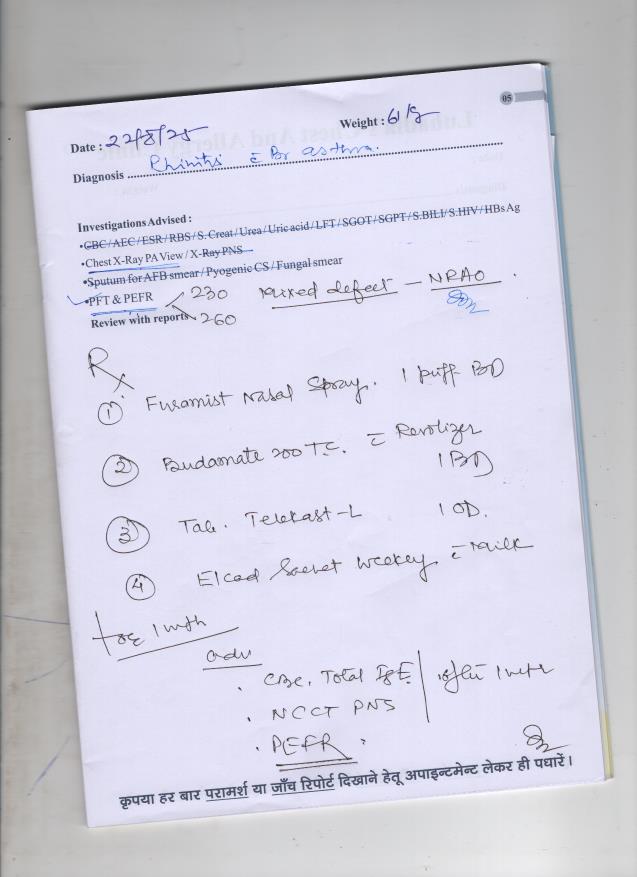 05
Date : 22/8/25 Weight : 61kg
Diagnosis Rhinitis c̄ Br asthma.
Investigations Advised :
•CBC / AEC / ESR / RBS / S. Creat / Urea / Uric acid / LFT / SGOT / SGPT / S.BILI / S.HIV / HBs Ag
•Chest X-Ray PA View / X-Ray PNS
•Sputum for AFB smear / Pyogenic CS / Fungal smear
•PFT & PEFR < 230 Mixed defect – NRAO.
Review with reports 260
Rx
① Furamist Nasal Spray. 1 puff BD
② Budamate 200 T.C. c̄ Revolizer
1 BD
③ Tab. Telekast-L 1 OD.
④ Elcad Sachet weekly c̄ Milk
for 1 mth
adv
. CBC, Total IgE. after 1 mth
. NCCT PNS
. PEFR
कृपया हर बार परामर्श या जाँच रिपोर्ट दिखाने हेतू अपाइन्टमेन्ट लेकर ही पधारें।